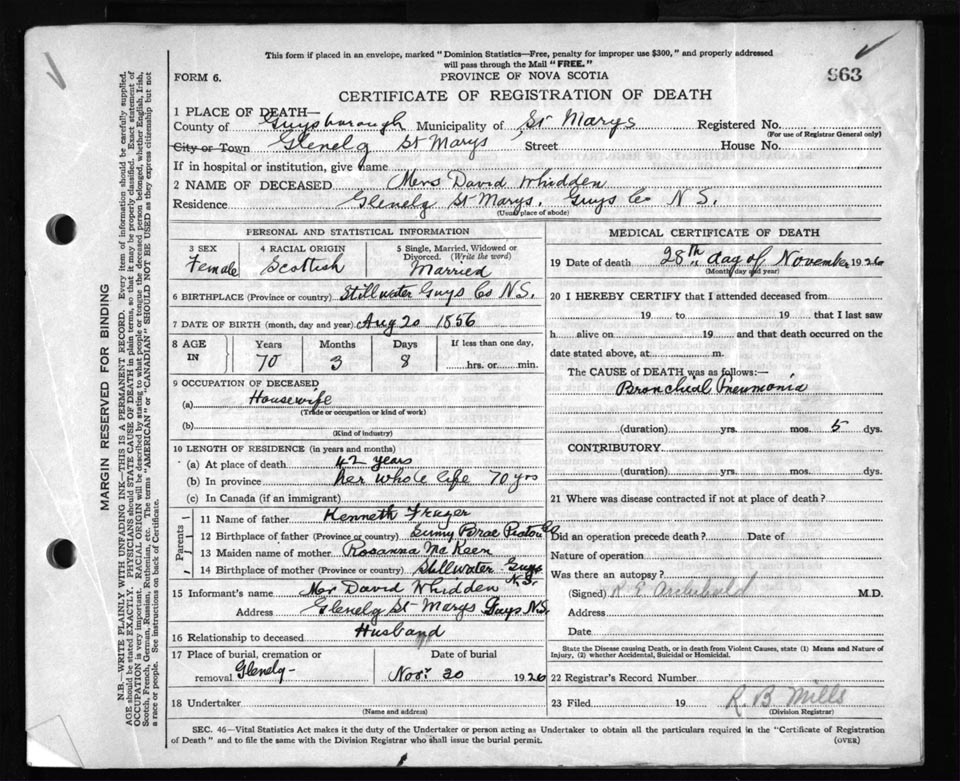 This form if placed in an envelope, marked "Dominion Statistics—Free, penalty for improper use $300," and properly addressed
will pass through the Mail "FREE."
FORM 6.
PROVINCE OF NOVA SCOTIA
963
CERTIFICATE OF REGISTRATION OF DEATH
1 PLACE OF DEATH—
County of Guysborough Municipality of St Marys Registered No.
(For use of Registrar General only)
City or Town Glenelg St Marys Street House No.
If in hospital or institution, give name
2 NAME OF DECEASED Mrs David Whidden
Residence Glenelg St Marys. Guys Co N S.
(Usual place of abode)
PERSONAL AND STATISTICAL INFORMATION
3 SEX
Female
4 RACIAL ORIGIN
Scottish
5 Single, Married, Widowed or
Divorced. (Write the word)
Married
6 BIRTHPLACE (Province or country) Stillwater Guys Co N.S.
7 DATE OF BIRTH (month, day and year) Aug 20 1856
8 AGE
IN
Years
70
Months
3
Days
8
If less than one day,
hrs. or min.
9 OCCUPATION OF DECEASED
(a) Housewife
(Trade or occupation or kind of work)
(b)
(Kind of industry)
10 LENGTH OF RESIDENCE (in years and months)
(a) At place of death 42 years
(b) In province her whole life 70 yrs
(c) In Canada (if an immigrant)
Parents
11 Name of father Kenneth Frazer
12 Birthplace of father (Province or country) Sunny Brae Pictou Co
13 Maiden name of mother Rosanna McKeen
14 Birthplace of mother (Province or country) Stillwater Guys
N.S.
15 Informant's name Mr David Whidden
Address Glenelg St Marys Guys N.S.
16 Relationship to deceased Husband
17 Place of burial, cremation or
removal Glenelg
Date of burial
Nov. 30 1926
18 Undertaker
(Name and address)
MEDICAL CERTIFICATE OF DEATH
19 Date of death 28th day of November 1926
(Month, day and year)
20 I HEREBY CERTIFY that I attended deceased from
19 to 19 that I last saw
h alive on 19 and that death occurred on the
date stated above, at m.
The CAUSE of DEATH was as follows:—
Bronchial Pneumonia
(duration) yrs. mos. 5 dys.
CONTRIBUTORY
(duration) yrs. mos. dys.
21 Where was disease contracted if not at place of death?
Did an operation precede death? Date of
Nature of operation
Was there an autopsy?
(Signed) R E Archibald M.D.
Address
Date
State the Disease causing Death, or in death from Violent Causes, state (1) Means and Nature of
Injury, (2) whether Accidental, Suicidal or Homicidal.
22 Registrar's Record Number
23 Filed 19 R. B Mills
(Division Registrar)
SEC. 46—Vital Statistics Act makes it the duty of the Undertaker or person acting as Undertaker to obtain all the particulars required in the "Certificate of Registration
of Death" and to file the same with the Division Registrar who shall issue the burial permit.
(OVER)
MARGIN RESERVED FOR BINDING
N.B.—WRITE PLAINLY WITH UNFADING INK—THIS IS A PERMANENT RECORD. Every item of information should be carefully supplied.
AGE should be stated EXACTLY. PHYSICIANS should STATE CAUSE OF DEATH in plain terms, so that it may be properly classified. Exact statement of
OCCUPATION is very important. RACIAL ORIGIN will be described by stating to what people or tongue the deceased person belonged, whether English, Irish,
Scotch, French, German, Russian, Ruthenian, etc. The terms "AMERICAN" or "CANADIAN" SHOULD NOT BE USED as they express citizenship but not
a race or people. See instructions on back of Certificate.